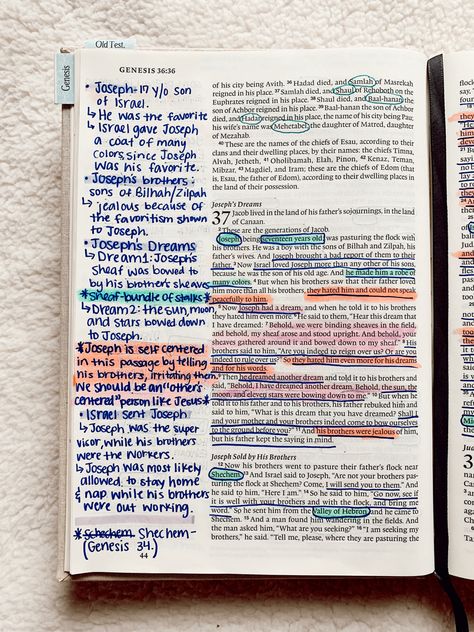 Old Test.
Genesis
GENESIS 36:36
• Joseph-17 y/o son
of Israel.
↳ He was the favorite
↳ Israel gave Joseph
a coat of many
colors since Joseph
was his favorite.
• Joseph's brothers:
sons of Bilhah/Zilpah
↳ jealous because of
the favoritism shown
to Joseph.
• Joseph's Dreams
↳ Dream1: Joseph's
sheaf was bowed to
by his brother's sheaves
*sheaf-bundle of stalks*
↳ Dream2: the sun, moon,
and stars bowed down
to Joseph.
*Joseph is self centered
in this passage by telling
his brothers, irritating them.
We should be an "other's
centered" person like Jesus*
• Israel sent Joseph
↳ Joseph was the super
visor, while his brothers
were the workers.
↳ Joseph was most likely
allowed to stay home
& nap while his brothers
were out working.
* schechem Shechem-
(Genesis 34.)
44
of his city being Avith. 36 Hadad died, and Samlah of Masrekah
reigned in his place. 37 Samlah died, and Shaul of Rehoboth on the
Euphrates reigned in his place. 38 Shaul died, and Baal-hanan the
son of Achbor reigned in his place. 39 Baal-hanan the son of Achbor
died, and Hadar reigned in his place, the name of his city being Pau;
his wife's name was Mehetabel, the daughter of Matred, daughter
of Mezahab.
40 These are the names of the chiefs of Esau, according to their
clans and their dwelling places, by their names: the chiefs Timna,
Alvah, Jetheth, 41 Oholibamah, Elah, Pinon, 42 Kenaz, Teman,
Mibzar, 43 Magdiel, and Iram; these are the chiefs of Edom (that
is, Esau, the father of Edom), according to their dwelling places in
the land of their possession.
Joseph's Dreams
37 Jacob lived in the land of his father's sojournings, in the land
of Canaan.
2 These are the generations of Jacob.
Joseph, being seventeen years old, was pasturing the flock with
his brothers. He was a boy with the sons of Bilhah and Zilpah, his
father's wives. And Joseph brought a bad report of them to their
father. 3 Now Israel loved Joseph more than any other of his sons,
because he was the son of his old age. And he made him a robe of
many colors. 4 But when his brothers saw that their father loved
him more than all his brothers, they hated him and could not speak
peacefully to him.
5 Now Joseph had a dream, and when he told it to his brothers
they hated him even more. 6 He said to them, "Hear this dream that
I have dreamed: 7 Behold, we were binding sheaves in the field,
and behold, my sheaf arose and stood upright. And behold, your
sheaves gathered around it and bowed down to my sheaf." 8 His
brothers said to him, "Are you indeed to reign over us? Or are you
indeed to rule over us?" So they hated him even more for his dreams
and for his words.
9 Then he dreamed another dream and told it to his brothers and
said, "Behold, I have dreamed another dream. Behold, the sun, the
moon, and eleven stars were bowing down to me." 10 But when he
told it to his father and to his brothers, his father rebuked him and
said to him, "What is this dream that you have dreamed? Shall I
and your mother and your brothers indeed come to bow ourselves
to the ground before you?" 11 And his brothers were jealous of him,
but his father kept the saying in mind.
Joseph Sold by His Brothers
12 Now his brothers went to pasture their father's flock near
Shechem. 13 And Israel said to Joseph, "Are not your brothers pas-
turing the flock at Shechem? Come, I will send you to them." And
he said to him, "Here I am." 14 So he said to him, "Go now, see if
it is well with your brothers and with the flock, and bring me
word." So he sent him from the Valley of Hebron, and he came to
Shechem. 15 And a man found him wandering in the fields. And
the man asked him, "What are you seeking?" 16 "I am seeking my
brothers," he said. "Tell me, please, where they are pasturing the